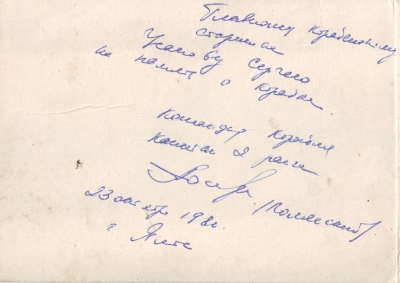 Главному Корабельному
старшине
Усенову Сергею
на память о Корабле
Командир Корабля
Капитан 2 ранга
23 октября 198
г Ялта